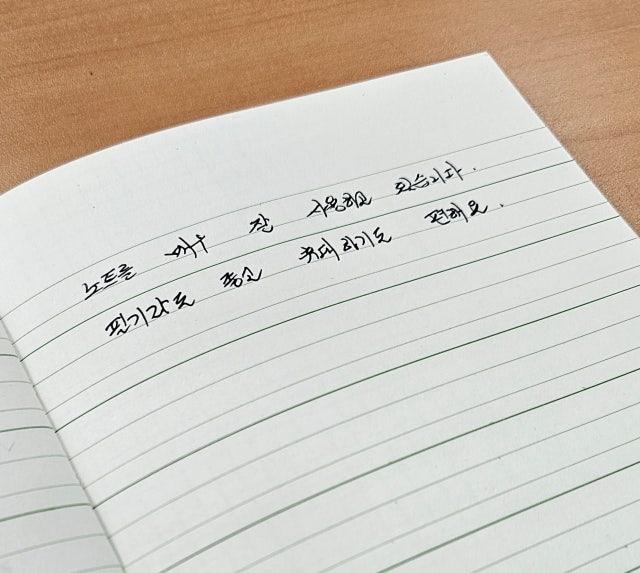 노트를 매우 잘 사용하고 있습니다.
필기감도 좋고 휴대하기도 편해요.